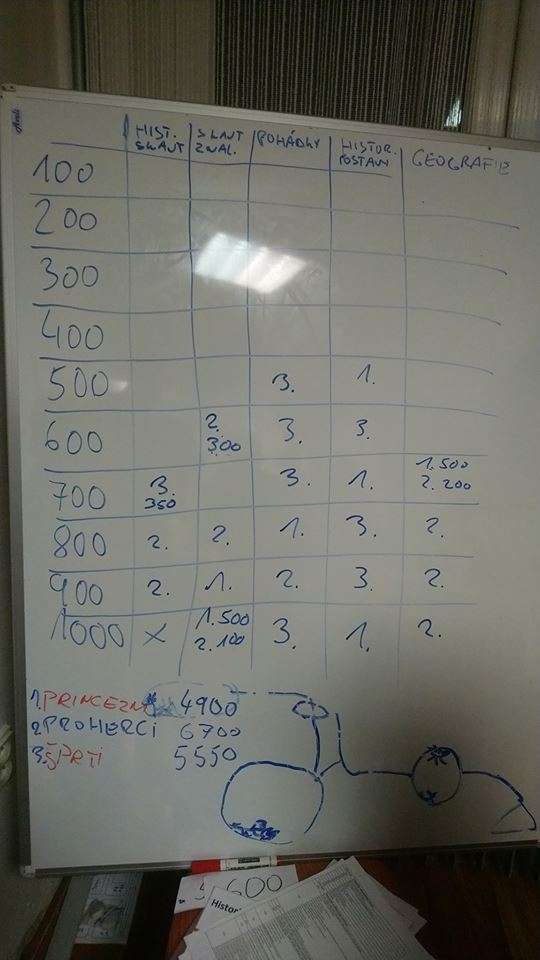 HIST. SKAUT | SKAUT ZNAL. | POHÁDKY | HISTOR. POSTAVY | GEOGRAFIE
100
200
300
400
500 3. 1.
600 2. 300 3. 3.
700 3. 350 3. 1. 1. 500 2. 200
800 2. 2. 1. 3. 2.
900 2. 1. 2. 3. 2.
1000 x 1. 500 2. 100 3. 1. 2.
1. PRINCEZN 4900
2. PROHERCI 6700
3. ŠPRTI 5550
600
Histor